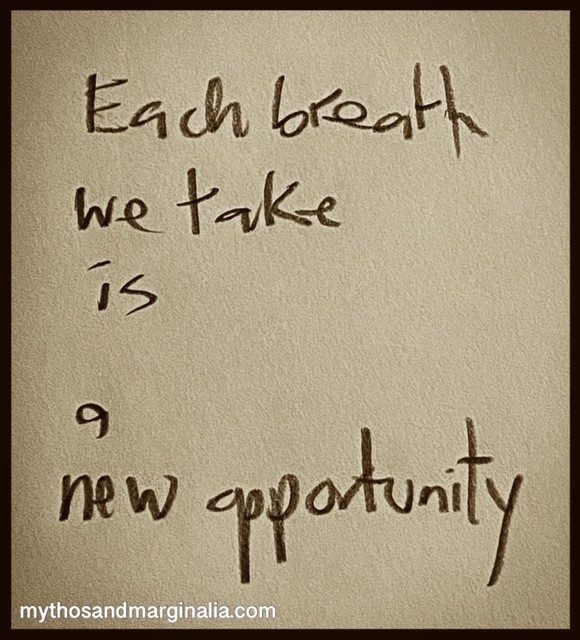 Each breath
we take
is
a
new opportunity
mythosandmarginalia.com